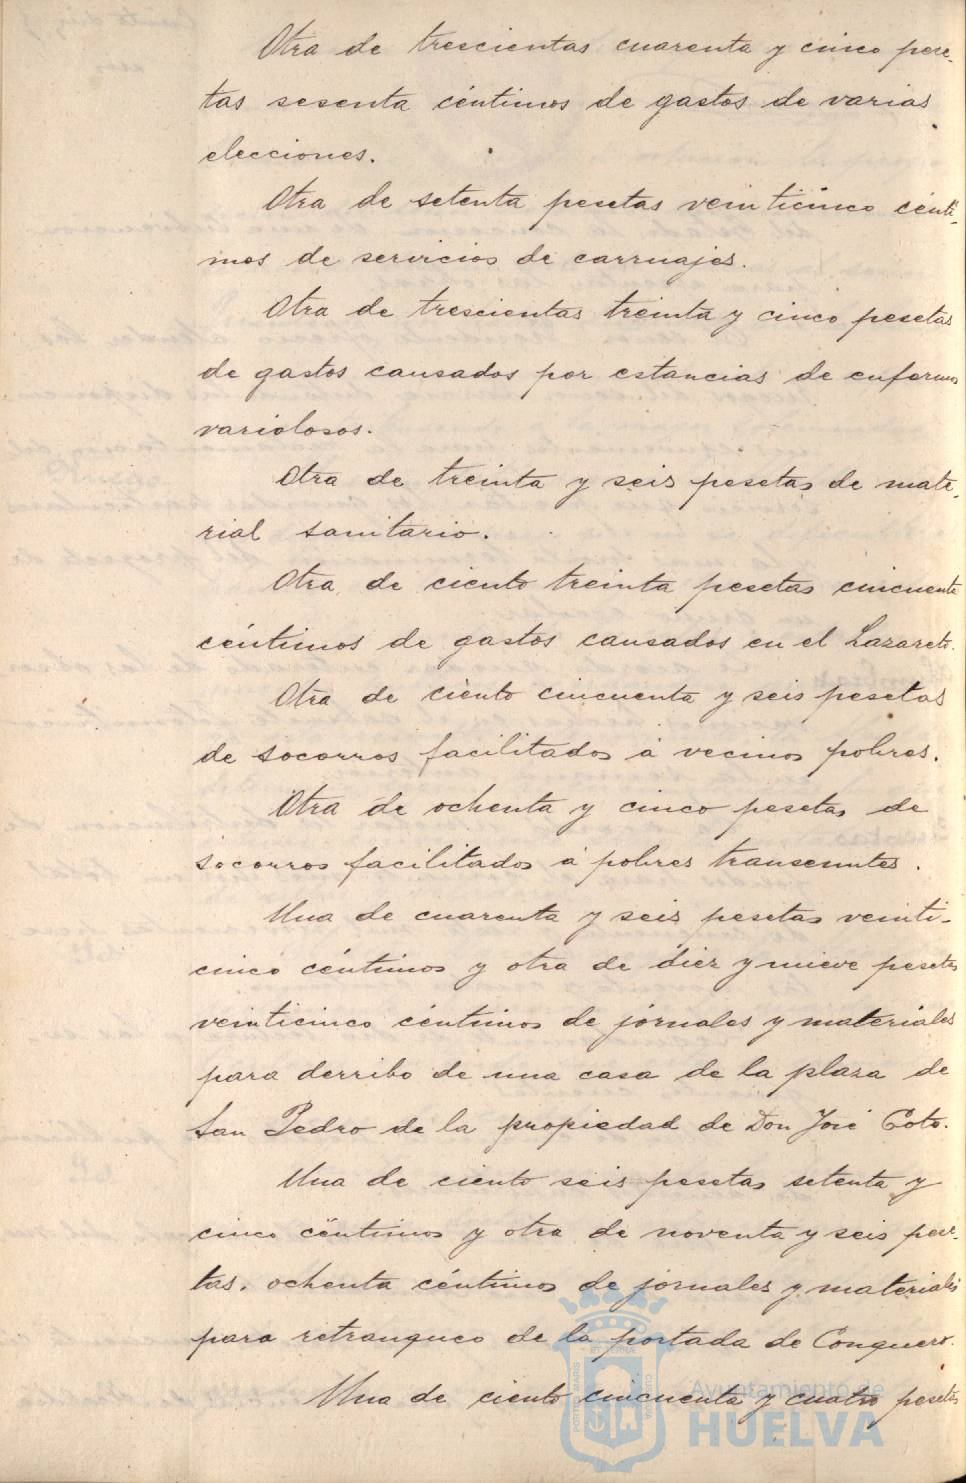 Otra de trescientas cuarenta y cinco pese-
tas sesenta céntimos de gastos de varias
elecciones.
Otra de setenta pesetas veinticinco cénti-
mos de servicios de carruajes.
Otra de trescientas treinta y cinco pesetas
de gastos causados por estancias de enfermos
variolosos.
Otra de treinta y seis pesetas de mate-
rial sanitario.
Otra de ciento treinta pesetas cincuenta
céntimos de gastos causados en el Lazareto.
Otra de ciento cincuenta y seis pesetas
de socorros facilitados á vecinos pobres.
Otra de ochenta y cinco pesetas de
socorros facilitados á pobres transeuntes.
Una de cuarenta y seis pesetas veinti-
cinco céntimos y otra de diez y nueve pesetas
veinticinco céntimos de jornales y materiales
para derribo de una casa de la plaza de
San Pedro de la propiedad de Don José Coto.
Una de ciento seis pesetas setenta y
cinco céntimos y otra de noventa y seis pese-
tas, ochenta céntimos de jornales y materiales
para retranqueo de la portada de Conquero.
Una de ciento cincuenta y cuatro pesetas
Ayuntamiento de
HUELVA